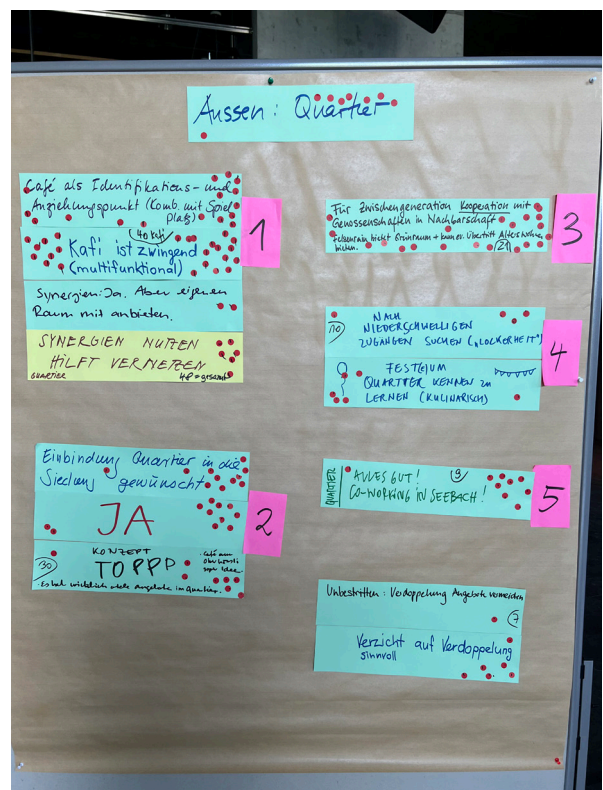 Aussen: Quartier
Café als Identifikations- und
Anziehungspunkt (Komb. mit Spiel
platz)
(40 Kafi
Kafi ist zwingend
(multifunktional)
Synergien: Ja. Aber eigenen
Raum mit anbieten.
SYNERGIEN NUTZEN
HILFT VERNETZEN
QUARTIER 48 = gesamt
1
Einbindung Quartier in die
Siedlung gewünscht
JA
KONZEPT
TOPPP
30
Café am
Idee
Es hat wirklich viele Angebote im Quartier.
2
Für Zwischengeneration Kooperation mit
Genossenschaften in Nachbarschaft
bietet Grünraum +
bieten.
21
3
NACH
NIEDERSCHWELLIGEN
ZUGÄNGEN SUCHEN („LOCKERHEIT")
10
FEST(E) UM
QUARTIER KENNEN ZU
LERNEN (KULINARISCH)
4
QUARTIER
ALLES GUT!
9
CO-WORKING IN SEEBACH!
5
Unbestritten: Verdoppelung Angebote vermeiden
7
Verzicht auf Verdoppelung
sinnvoll